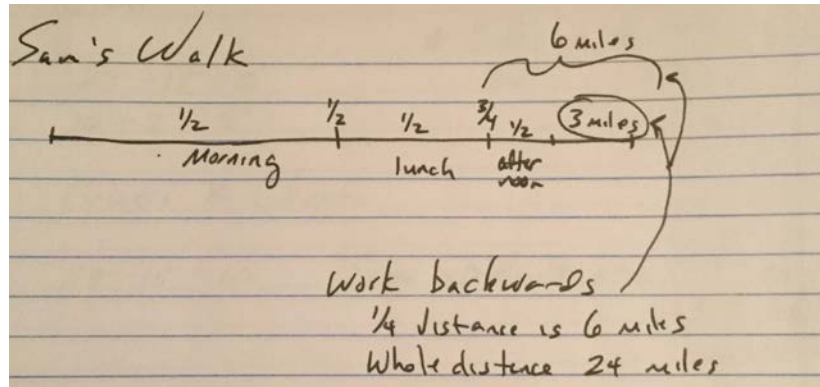 Sam's Walk
6 miles
1/2 1/2 1/2 3/4 1/2 3 miles
Morning lunch after
noon
Work backwards
1/4 distance is 6 miles
Whole distance 24 miles